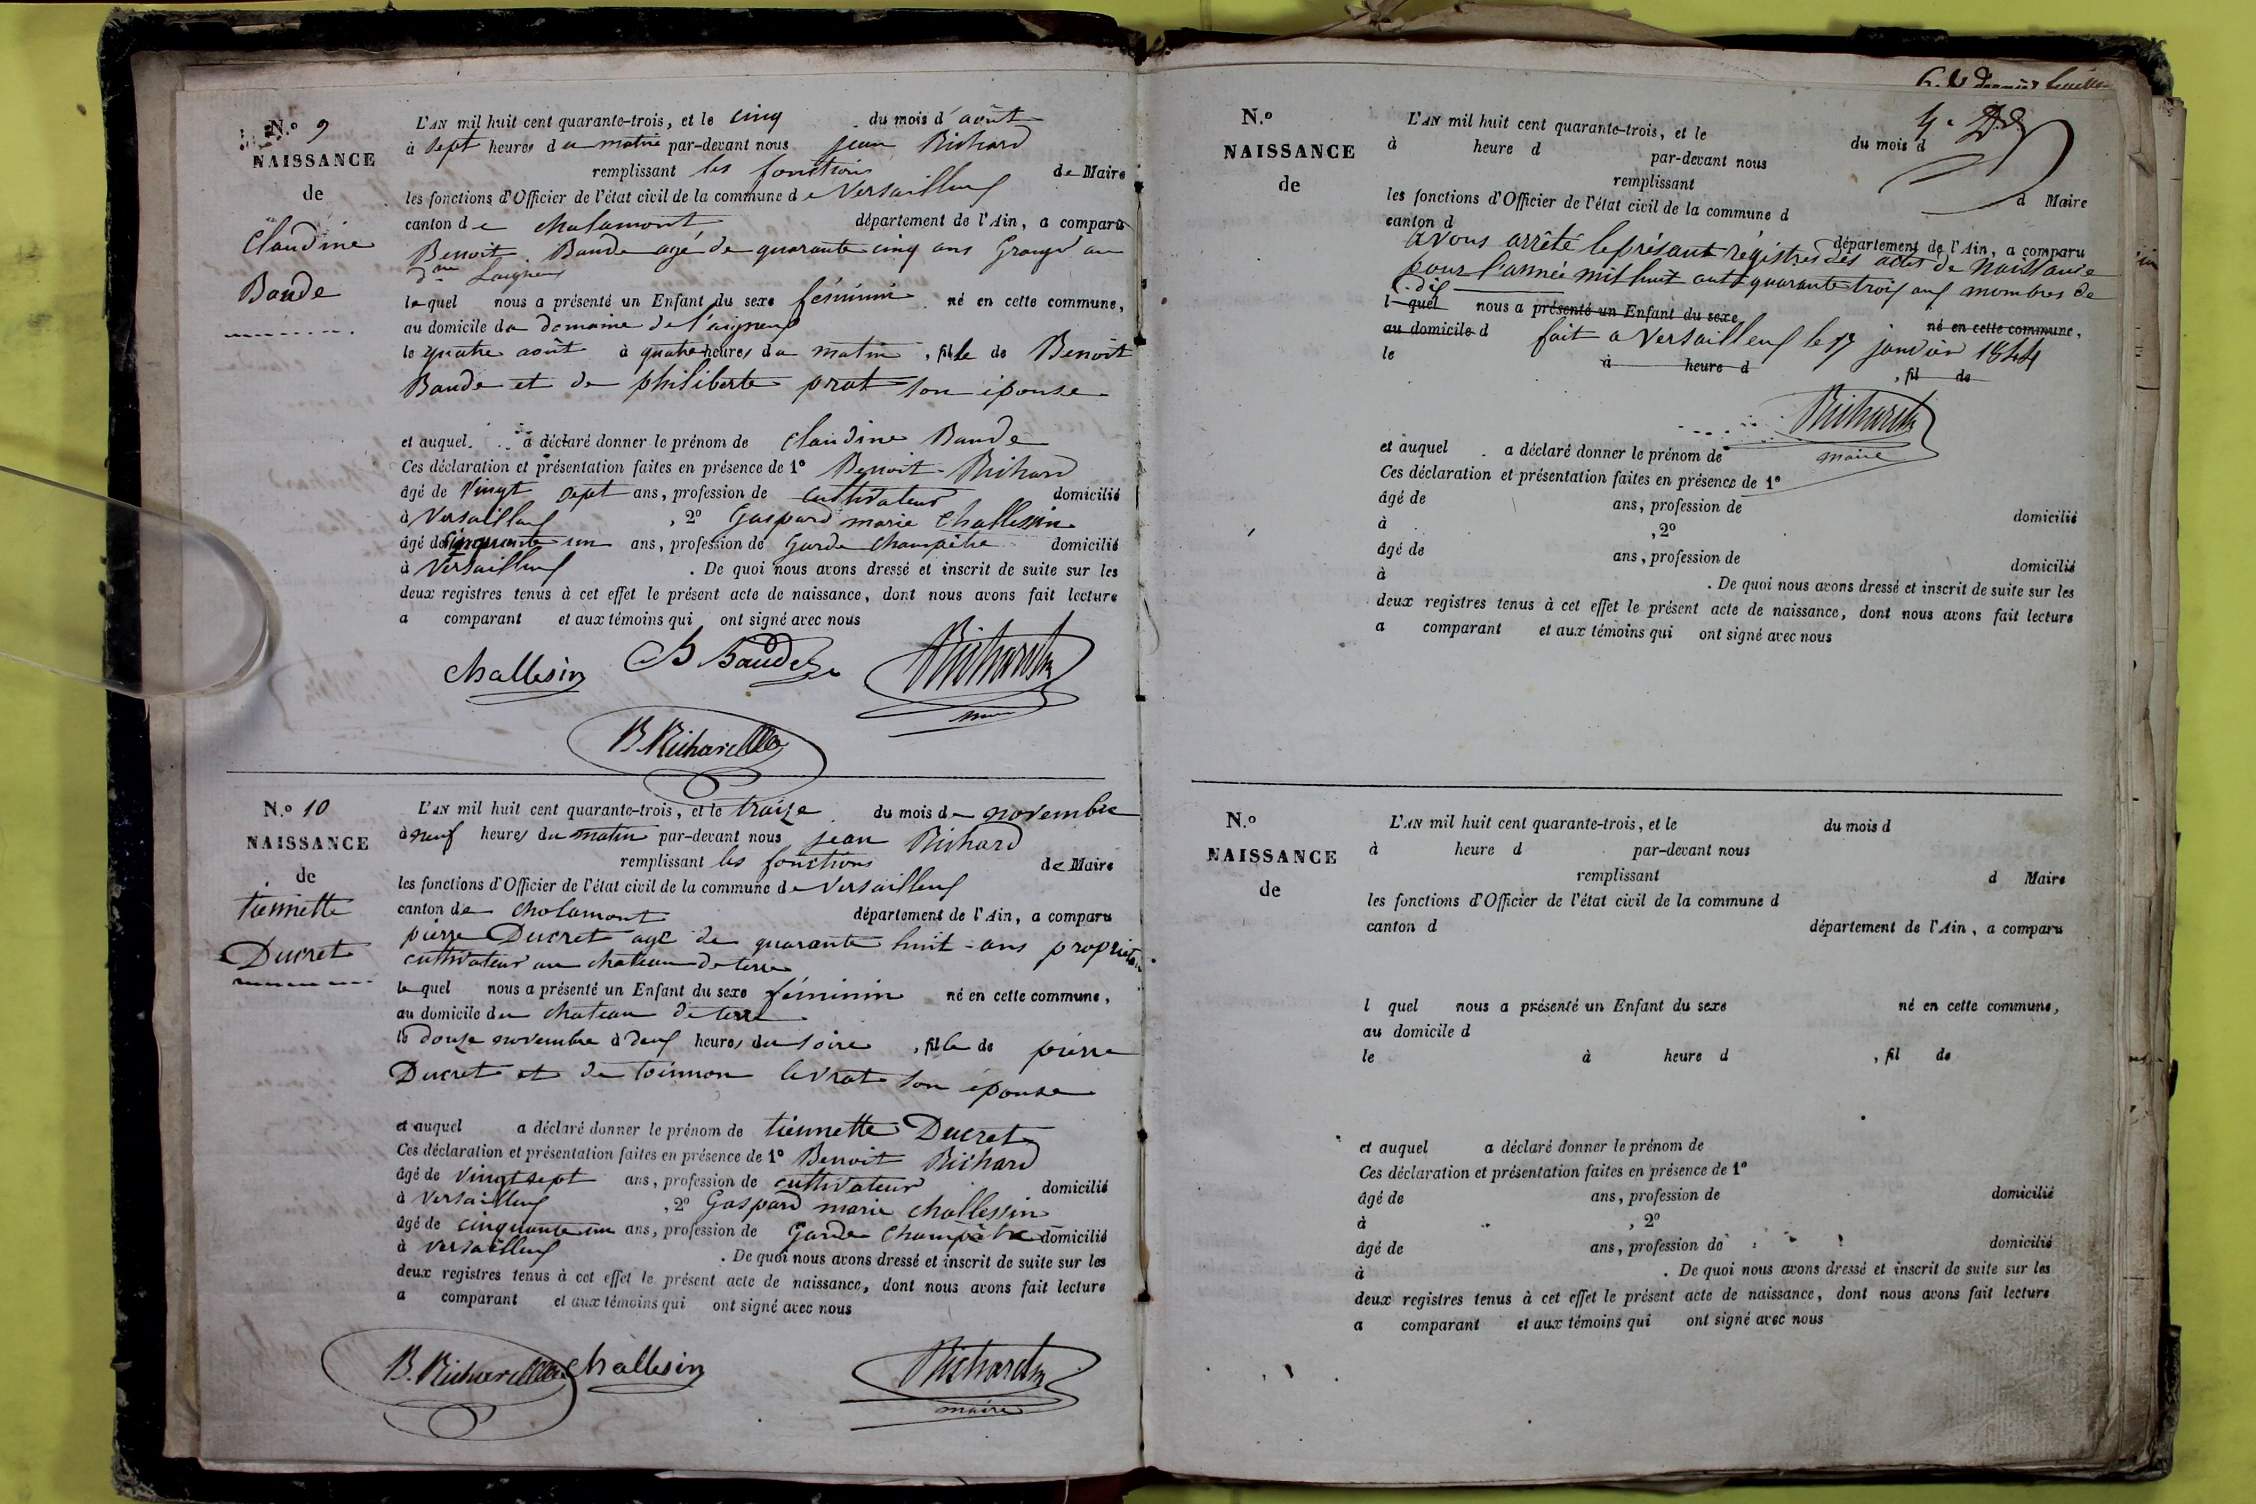 N.º 9
NAISSANCE
de
Claudine
Baude
L'AN mil huit cent quarante-trois, et le cinq du mois d'août
à sept heures du matin par-devant nous jean Richard
remplissant les fonctions de Maire
les fonctions d'Officier de l'état civil de la commune de Versailleux
canton de chalamont département de l'Ain, a comparu
Benoit Baude agé de quarante cinq ans Granger au
dne Laigneux
lequel nous a présenté un Enfant du sexe féminin né en cette commune,
au domicile du domaine de l'aigneux
le quatre août à quatre heures du matin, fille de Benoit
Baude et de philiberte prat son épouse
et auquel a déclaré donner le prénom de Claudine Baude
Ces déclaration et présentation faites en présence de 1º Benoit Richard
âgé de Vingt sept ans, profession de cultivateur domicilié
à Versailleux, 2º Gaspard marie Challesin
âgé de cinquante un ans, profession de Garde Champêtre domicilié
à Versailleux. De quoi nous avons dressé et inscrit de suite sur les
deux registres tenus à cet effet le présent acte de naissance, dont nous avons fait lecture
a comparant et aux témoins qui ont signé avec nous
Challesin B Baude Richard
maire
B. Richard
N.º 10
NAISSANCE
de
tiennette
Ducret
L'AN mil huit cent quarante-trois, et le traize du mois de novembre
à neuf heures du matin par-devant nous jean Richard
remplissant les fonctions de Maire
les fonctions d'Officier de l'état civil de la commune de Versailleux
canton de cholamont département de l'Ain, a comparu
pierre Ducret agé de quarante huit ans propriétaire
cultivateur au chateau de terre
lequel nous a présenté un Enfant du sexe féminin né en cette commune,
au domicile du chateau de terre
le douze novembre à deux heures du soire, fille de pierre
Ducret et de toinnon levrat son épouse
et auquel a déclaré donner le prénom de tiennette Ducret
Ces déclaration et présentation faites en présence de 1º Benoit Richard
âgé de vingt sept ans, profession de cultivateur domicilié
à Versailleux, 2º Gaspard marie challessin
âgé de cinquante un ans, profession de Garde Champêtre domicilié
à Versailleux. De quoi nous avons dressé et inscrit de suite sur les
deux registres tenus à cet effet le présent acte de naissance, dont nous avons fait lecture
a comparant et aux témoins qui ont signé avec nous
B. Richard Challesin Richard
maire
dernier feuillet
N.º
NAISSANCE
de
L'AN mil huit cent quarante-trois, et le du mois d
à heure d par-devant nous
remplissant d Maire
les fonctions d'Officier de l'état civil de la commune d
canton d département de l'Ain, a comparu
avons arrêté le présant régistres des actes de Naissance
pour l'année mil huit cent quarante trois aux nombres de
dix
l quel nous a présenté un Enfant du sexe né en cette commune,
au domicile d
fait a Versailleux le 17 janvier 1844
le à heure d, fil de
Richard
maire
et auquel a déclaré donner le prénom de
Ces déclaration et présentation faites en présence de 1º
âgé de ans, profession de domicilié
à, 2º
âgé de ans, profession de domicilié
à. De quoi nous avons dressé et inscrit de suite sur les
deux registres tenus à cet effet le présent acte de naissance, dont nous avons fait lecture
a comparant et aux témoins qui ont signé avec nous
N.º
NAISSANCE
de
L'AN mil huit cent quarante-trois, et le du mois d
à heure d par-devant nous
remplissant d Maire
les fonctions d'Officier de l'état civil de la commune d
canton d département de l'Ain, a comparu
l quel nous a présenté un Enfant du sexe né en cette commune,
au domicile d
le à heure d, fil de
et auquel a déclaré donner le prénom de
Ces déclaration et présentation faites en présence de 1º
âgé de ans, profession de domicilié
à, 2º
âgé de ans, profession de domicilié
à. De quoi nous avons dressé et inscrit de suite sur les
deux registres tenus à cet effet le présent acte de naissance, dont nous avons fait lecture
a comparant et aux témoins qui ont signé avec nous